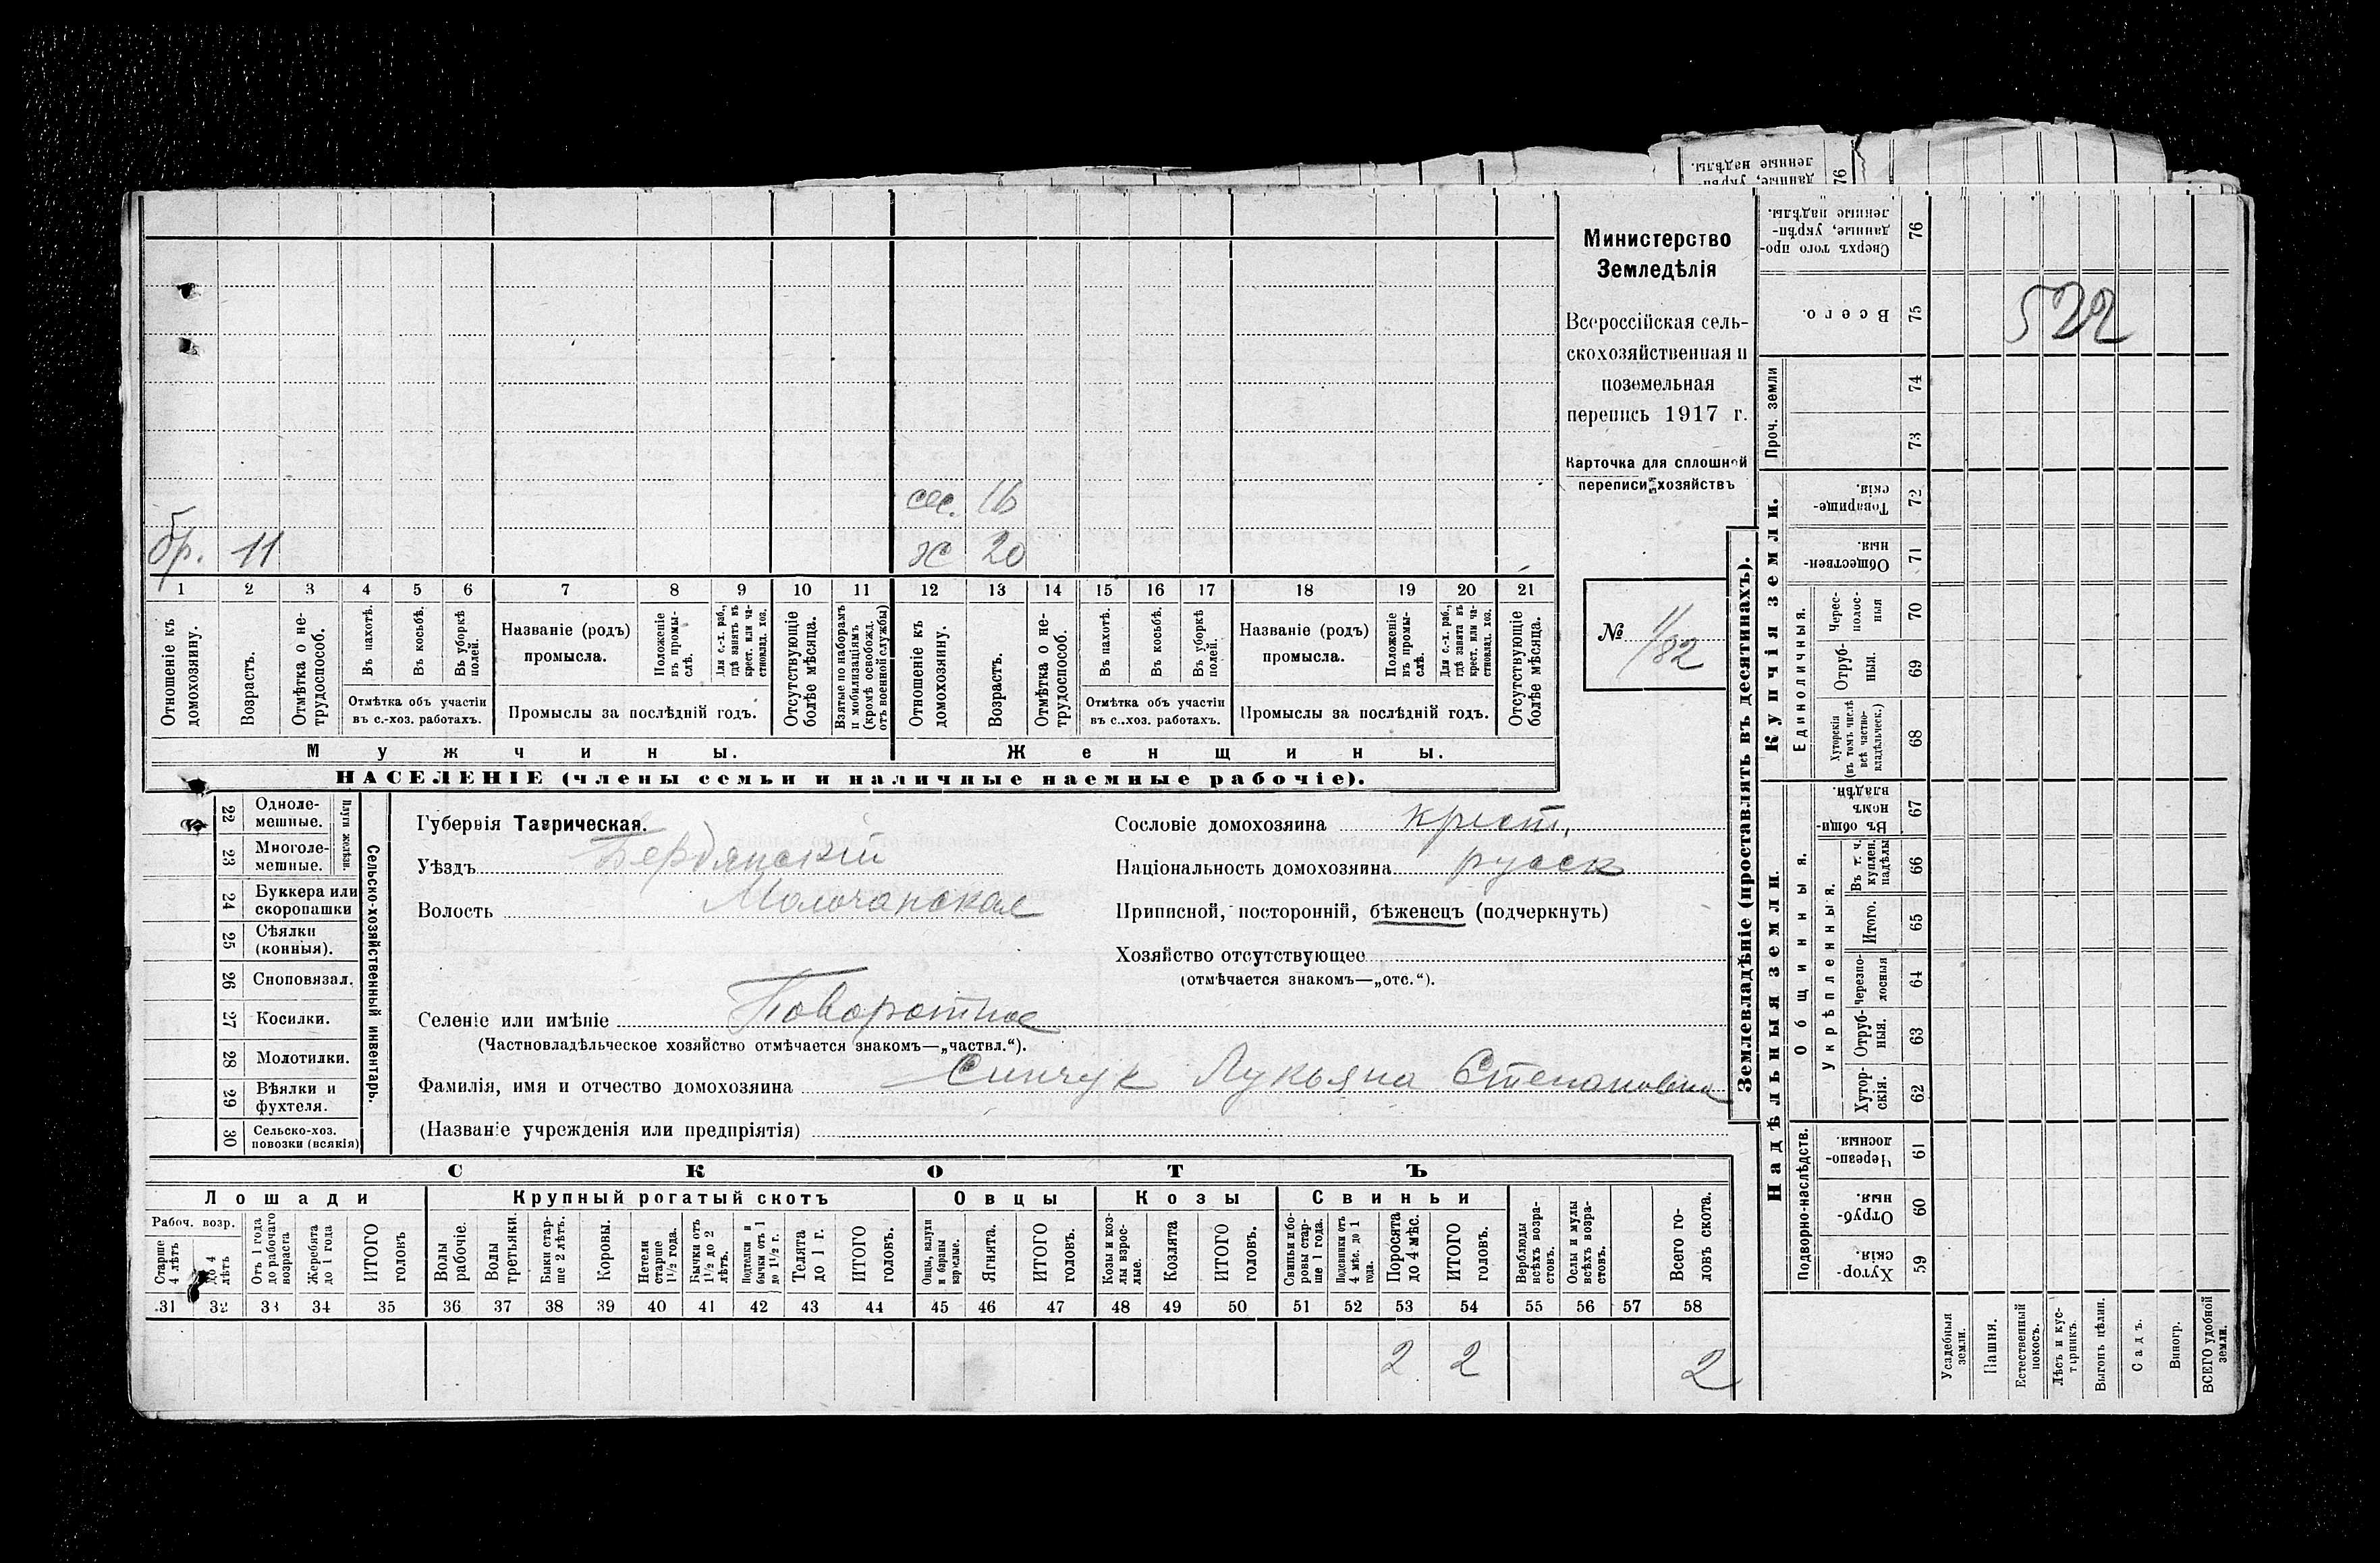 ленные надѣлы.
данные, укрѣп-
76
бр. 11
сес. 16
ж 20
1 2 3 4 5 6 7 8 9 10 11 12 13 14 15 16 17 18 19 20 21
Отношеніе къ домохозяину.
Возрастъ.
Отмѣтка о не-трудоспособ.
Въ пахотѣ.
Въ косьбѣ.
Въ уборкѣ полей.
Отмѣтка объ участіи
въ с.-хоз. работахъ.
Названіе (родъ)
промысла.
Положеніе въ промы-слѣ.
Для с.-х. раб., гдѣ занятъ въ крест. или ча-стновлад. хоз.
Промыслы за послѣдній годъ.
Отсутствующіе болѣе мѣсяца.
Взятые по наборамъ и мобилизаціямъ (кромѣ освобожд. отъ военной службы)
Отношеніе къ домохозяину.
Возрастъ.
Отмѣтка о не-трудоспособ.
Въ пахотѣ.
Въ косьбѣ.
Въ уборкѣ полей.
Отмѣтка объ участіи
въ с.-хоз. работахъ.
Названіе (родъ)
промысла.
Положеніе въ промы-слѣ.
Для с.-х. раб., гдѣ занята въ крест. или ча-стновлад. хоз.
Промыслы за послѣдній годъ.
Отсутствующіе болѣе мѣсяца.
Мужчины. Женщины.
НАСЕЛЕНІЕ (члены семьи и наличные наемные рабочіе).
Министерство
Земледѣлія
Всероссійская сель-
скохозяйственная и
поземельная
перепись 1917 г.
Карточка для сплошной
переписи хозяйствъ
№ 1/82
Сельско-хозяйственный инвентарь.
Плуги желѣзн.
22 Одноле-мешные.
23 Многоле-мешные.
24 Буккера или скоропашки
25 Сѣялки (конныя).
26 Сноповязал.
27 Косилки.
28 Молотилки.
29 Вѣялки и фухтеля.
30 Сельско-хоз. повозки (всякія)
Губернія Таврическая.
Уѣздъ Бердянскій
Волость Молочанская
Сословіе домохозяина крест.
Національность домохозяина русск
Приписной, посторонній, бѣженецъ (подчеркнуть)
Хозяйство отсутствующее
(отмѣчается знакомъ—„отс.“).
Селеніе или имѣніе Поворотное
(Частновладѣльческое хозяйство отмѣчается знакомъ—„частвл.“).
Фамилія, имя и отчество домохозяина Синчук Лукьяна Степановна
(Названіе учрежденія или предпріятія)
СКОТЪ
Лошади Крупный рогатый скотъ Овцы Козы Свиньи
Рабоч. возр.
Старше 4 лѣтъ
до 4 лѣтъ
Отъ 1 года до рабочаго возраста
Жеребята до 1 года
ИТОГО головъ
Волы рабочіе.
Волы третьяки.
Быки стар-ше 2 лѣтъ.
Коровы.
Нетели старше 1½ года.
Бычки отъ 1½ до 2 лѣтъ.
Подтелки и бычки отъ 1 до 1½ г.
Телята до 1 г.
ИТОГО головъ.
Овцы, валухи и бараны взрослые.
Ягнята.
ИТОГО головъ.
Козы и коз-лы взрос-лые.
Козлята
ИТОГО головъ.
Свиньи и бо-ровы стар-ше 1 года.
Подсвинки отъ 4 мѣс. до 1 года.
Поросята до 4 мѣс.
ИТОГО головъ.
Верблюды всѣхъ возра-стовъ.
Ослы и мулы всѣхъ возра-стовъ.
Всего го-ловъ скота.
31 32 33 34 35 36 37 38 39 40 41 42 43 44 45 46 47 48 49 50 51 52 53 54 55 56 57 58
2 2 2
Землевладѣніе (проставлять въ десятинахъ).
Сверхъ того про-данные, укрѣп-ленные надѣлы. 76
Всего. 75
522
Проч. земли
74
73
Купчія земли.
Товарище-скія. 72
Обществен-ныя. 71
Единоличныя.
Черес-полос-ныя 70
Отруб-ныя. 69
Хуторскія (въ томъ числѣ всѣ частно-владѣльческ.) 68
Надѣльныя земли.
Общинныя.
Въ общин-номъ владѣн. 67
Укрѣпленныя.
Въ т. ч. куплен. надѣлы 66
Итого. 65
черезпо-лосныя 64
Отруб-ныя. 63
Хутор-скія. 62
Подворно-наслѣдств.
Черезпо-лосныя. 61
Отруб-ныя. 60
Хутор-скія. 59
Усадебныя земли.
Пашня.
Естественный покосъ.
Лѣсъ и кус-тарникъ.
Выгонъ цѣлин.
Садъ.
Виногр.
ВСЕГО удобной земли.